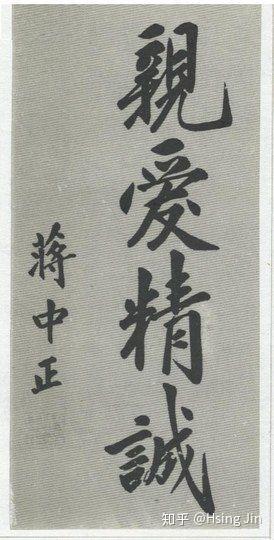 親爱精誠
蔣中正
知乎 @Hsing Jin